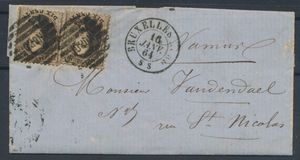 BRUXELLES
16
JANV
64
Namur
Monsieur Vandendael
rue St Nicolas